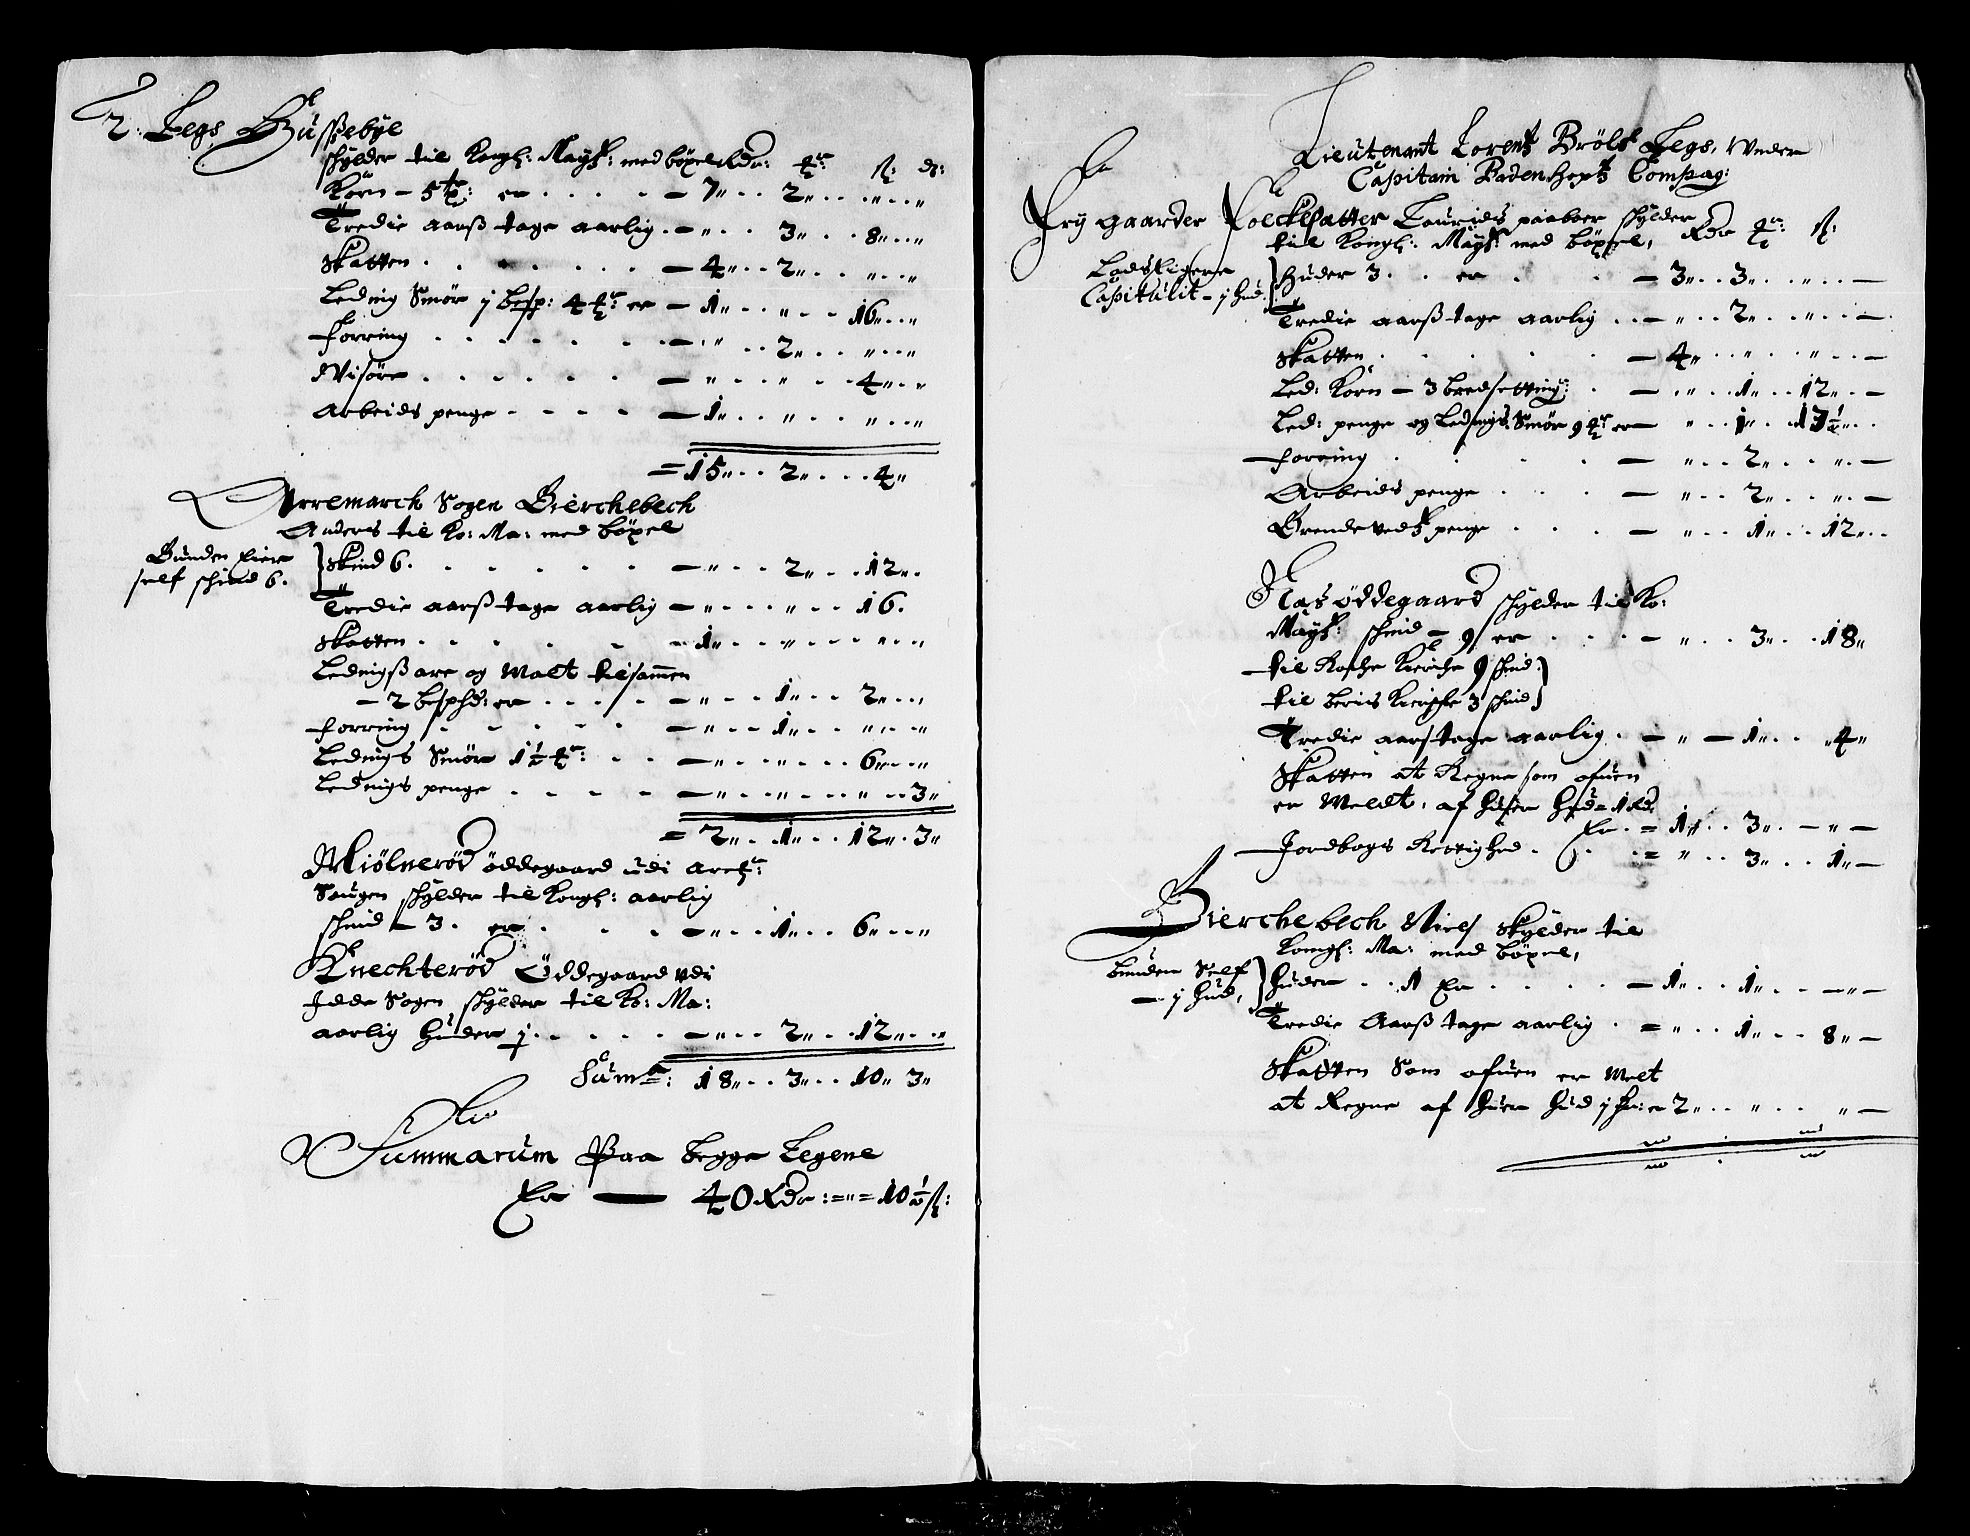 2. Legs Hussebye
schylder til Kongl: Mayst: med böxel Rdr: ort: s: d:
Korn – 5 tr: er . . . . – 7" . . 2" . . " . . "
Tredie aarß tage aarlig . – " . . 3" . . 8" . . "
Skatten . . . . . – 4" . . 2" . . " . . "
Leding Smör j besp: 4 er – 1" . . " . . 16" . . "
Forring . . . . . – " . . 2" . . " . . "
Wisöre . . . . . – " . . " . . 4" . . "
Arbeids penge . . . . – 1" . . " . . " . . "
= 15" . . 2" . . . 4"
Arremarch Sogen Bierchebech
Anders til Ko: Ma: med böxel
Bunden Eier
self schind 6.
Skind 6. . . . . – " . . 2" . . 12" .
Tredie aarß tage aarlig – " . . " . . 16.
Skatten . . . . . – 1" . . " . . " . . "
Ledingß are og Malt tilsamen
– 2 bespd: er . . . . – " . . 1" . . 2" . . "
forring . . . . . – " . . 1" . . " . . "
Ledings Smör 1½ : . . – " . . " . . 6" . . "
Ledings penge . . . . – " . . " . . " . . 3"
= 2" . . 1" . . 12" . 3"
Miölneröd öddegaard udi Are:
Sougen schylder til Kongl: aarlig
schind – 3. er . . . – " . . 1" . . 6" . . "
Knechteröd Öddegaard vdi
Idde Sogen schylder til Ko: Ma:
aarlig huder j . . . . – " . . 2" . . 12" . . "
Suma: 18" . . 3" . . 10" 3"
Summarum Paa begge Legene
Er — 40 Rdr := " = 10½ s:
Lieutenant Lorentz Brölß Legs, Vnder
Capitain Badenhoptz Compag:
En
Frij gaarder Foecksatter Lauridz paaboer schylder
til Kongl: Mayst: med böxel, Rdr ort s:
Lodseigere
Capitulit – j hud.
Huder 3 . . er . . – 3" . . 3" . . " . . –
Tredie aarß tage aarlig . . – " . . 2" . . " . . –
Skatten . . . . . – 4" . . " . . " . . –
Led: Korn – 3 bredsetting: . – " . . 1" . . 12" . . –
Led: penge og Ledings Smör 9 er – " . . 1" . . 13½" . .
forring . . . . – " . . 2" . . " . –
Arbeids penge . . . – " . . 2" . . " . –
Brendevedtz penge . . . – " . . 1" . . 12" . .
Nas öddegaard schylder til Ko:
Mayst: schind – 9 er . . . – " . . 3" . . 18"
til Kirche 9 schind
til Kirche 3 schind
Tredie aarstage aarlig . – " – 1" . . "4"
Skatten at Regne som ofuen
er Meldt, af huer hud – 1 Rd:
Er . = 1" . . 3" . – " –
Jordbogs Rettighed . . . = " . . 3" . . 1" –
Bierchebech Niels Skylder til
Kongl: Ma: med böxel,
bunden Self
– j hud,
huder . . 1 Er . . . . – 1" . . 1" . . – " –
Tredie Aarß tage aarlig . = " . . 1" . . 8" –
Skatten Som ofuen er Melt
at Regne af huer hud j er 2" . . " . . " –